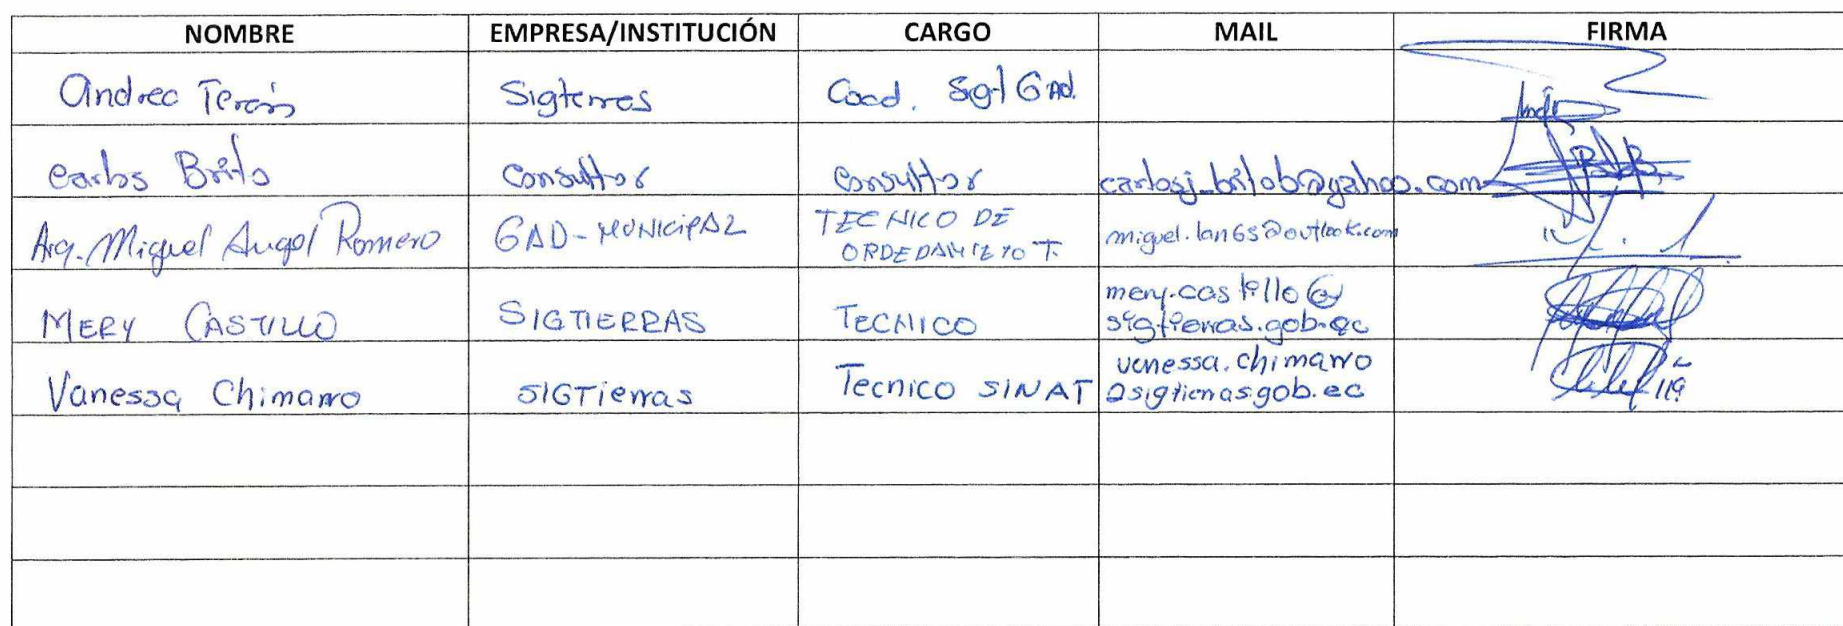 NOMBRE EMPRESA/INSTITUCIÓN CARGO MAIL FIRMA
Andrea Terán Sigtierras Coord. Sig-GAD.
Carlos Brito Consultor Consultor carlosj_britob@yahoo.com
Arq. Miguel Angel Romero GAD-MUNICIPAL TECNICO DE
ORDEDAMIETO T. miguel.lan6s@outlook.com
MERY CASTILLO SIGTIERRAS TECNICO mery.castillo@
sigtierras.gob.ec
Vanessa Chimarro SIGTierras Tecnico SINAT vanessa.chimarro
@sigtierras.gob.ec